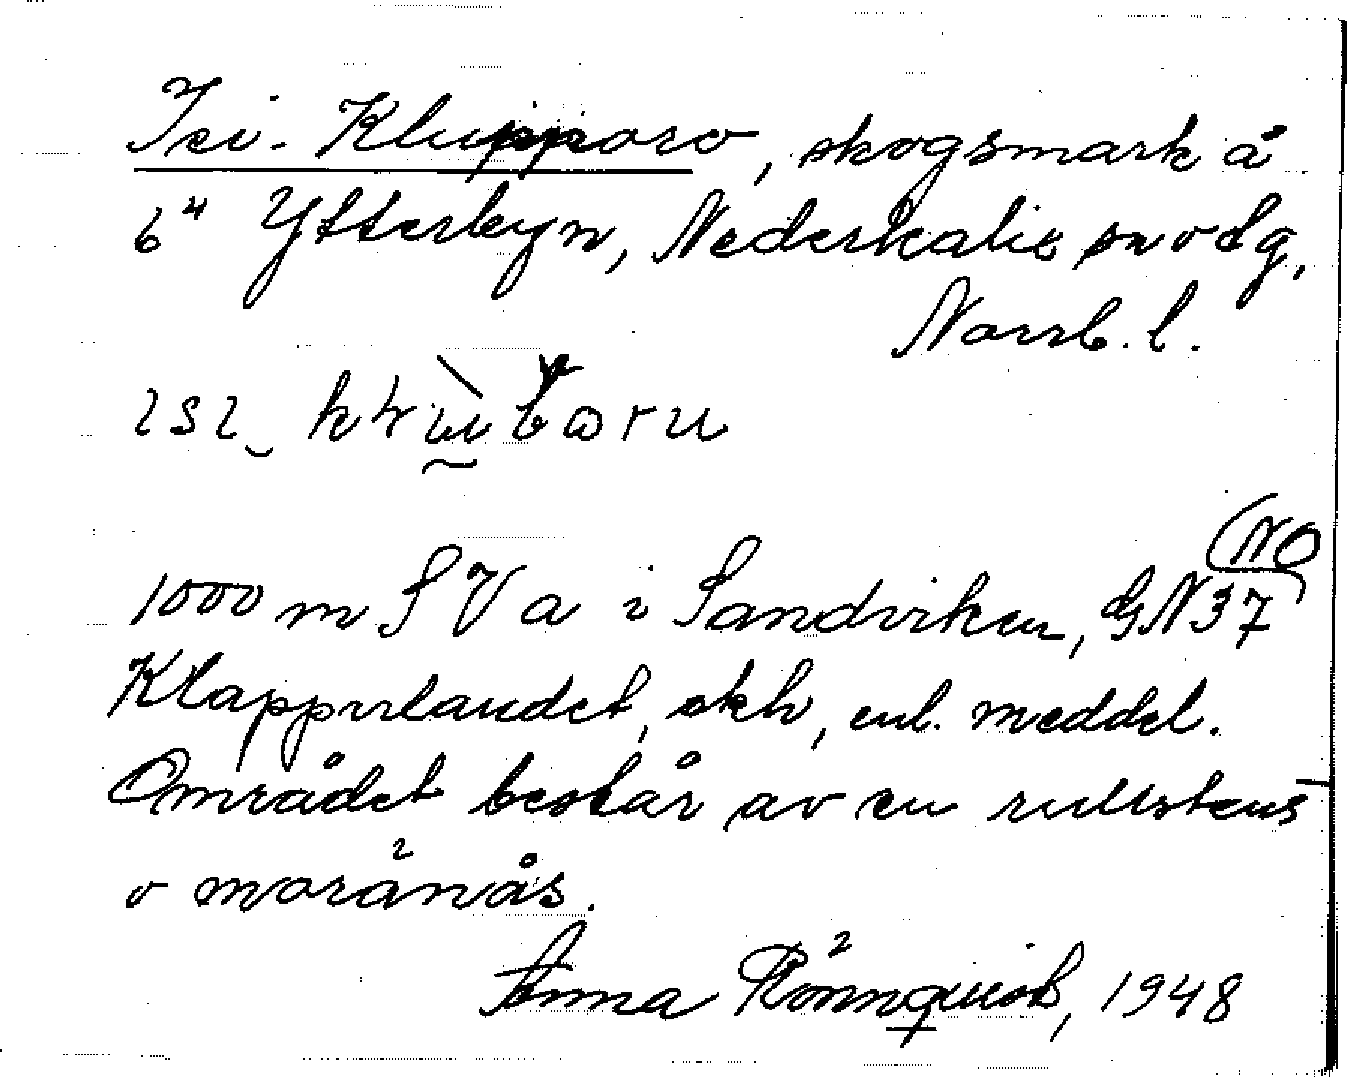 Isi-Klupporo, skogsmark å
6⁴ Ytterbyn, Nederkalix sn o dg,
Norrb. l.
1000 m SV a i Sandviken, GN37
(NO
Klapperlandet, skh, enl. meddel.
Området består av en rullstens
o moränås.
Anna Rönnquist, 1948